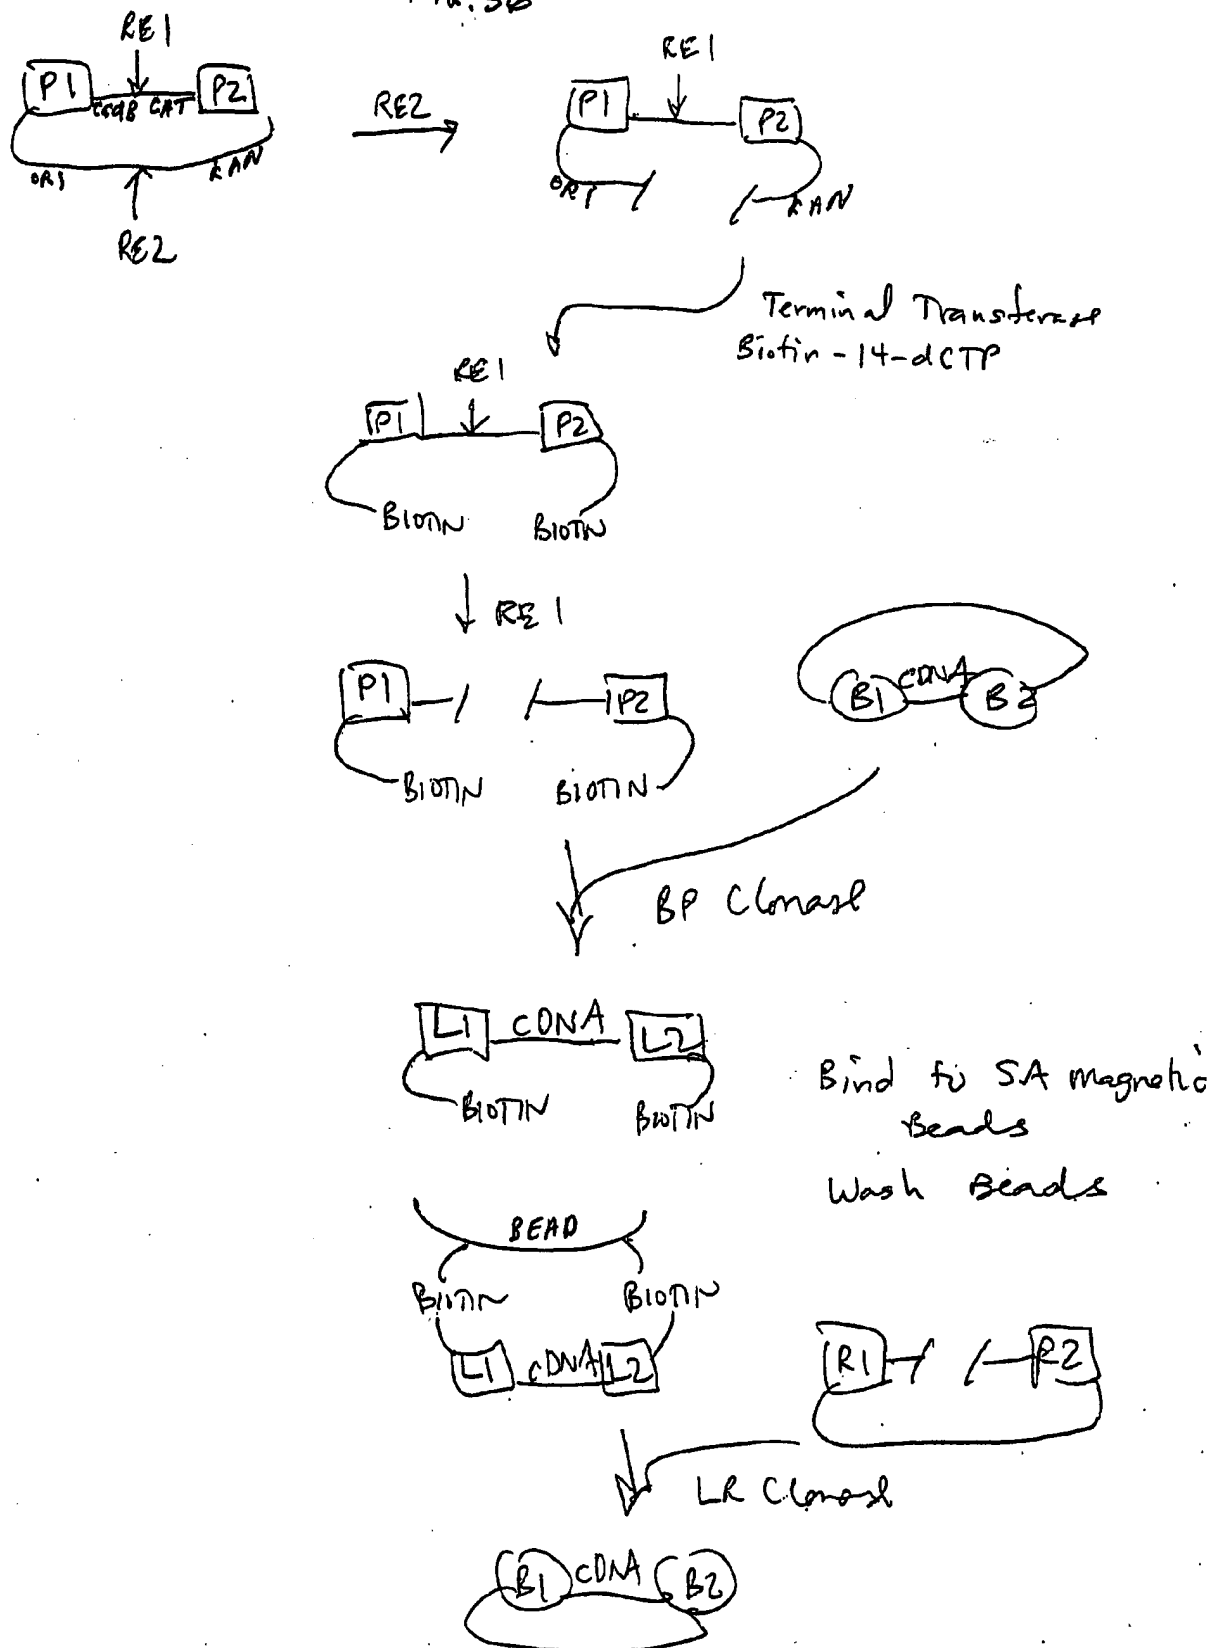 RE1
P1 P2
ccdB CAT
ORI KAN
RE2
RE2
RE1
P1 P2
ORI KAN
Terminal Transferase
Biotin-14-dCTP
RE1
P1 P2
BIOTIN BIOTIN
RE1
P1 P2
BIOTIN BIOTIN
B1 cDNA B2
BP Clonase
L1 cDNA L2
BIOTIN BIOTIN
Bind to SA magnetic
Beads
Wash Beads
BEAD
BIOTIN BIOTIN
L1 cDNA L2
R1 R2
LR Clonase
B1 cDNA B2